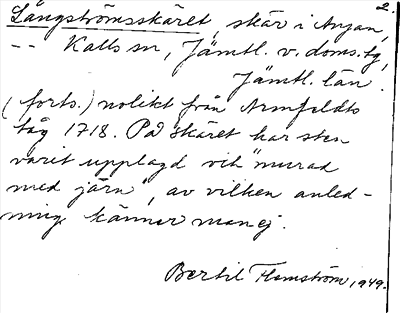 2.
Långströmsskäret, skär i Anjan,
-- Kalls sn, Jämtl. v. doms.tg,
Jämtl. län.
(forts.) nolikt från Armfeldts
tåg 1718. På skäret har sten
varit upplagd och "murad
med järn", av vilken anled-
ning känner man ej.
Bertil Flemström, 1949.